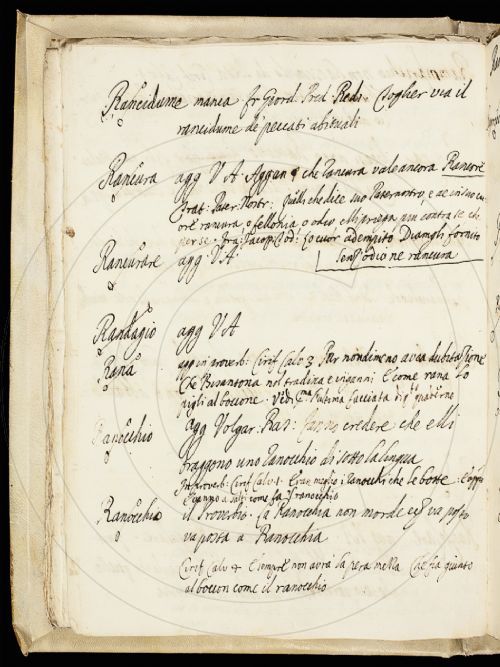 Rancidume manca fr Giord: Pred. Redi. Toglier via il
rancidume de' peccati abituali
Rancura agg V A Aggiun che rancura vale ancora Rancore
Trat: Pater Nostr: quelli che dice suo Paternostro, e ae in suo cu
ore rancura o fellonia o odio, elli priega più contra se che
per se. Fra Jacop: Tod: so cuor adempito D'amagli fornito
Senz'odio ne rancura
Rancurare agg V A
Randagio agg V A
Rana agg in proverb: Cirif Calv 3 Pur nondimeno avea dubitazione
Che Bisantona nol tradi e come rana lo
pigli al boccone
Ranocchio agg Volgar: Ras: fanno credere che elli
traggono uno ranocchio di sotto la lingua
In proverb: Cirif Calv 1 ranocchi che le botte
a salti come fa 'l ranocchio
Ranocchia il Proverbio. La Ranocchia non morde
posta a Ranocchia
Cirif Calv 4 E sempre non avrà la pera mella Che sia giunto
al boccon come il ranocchio